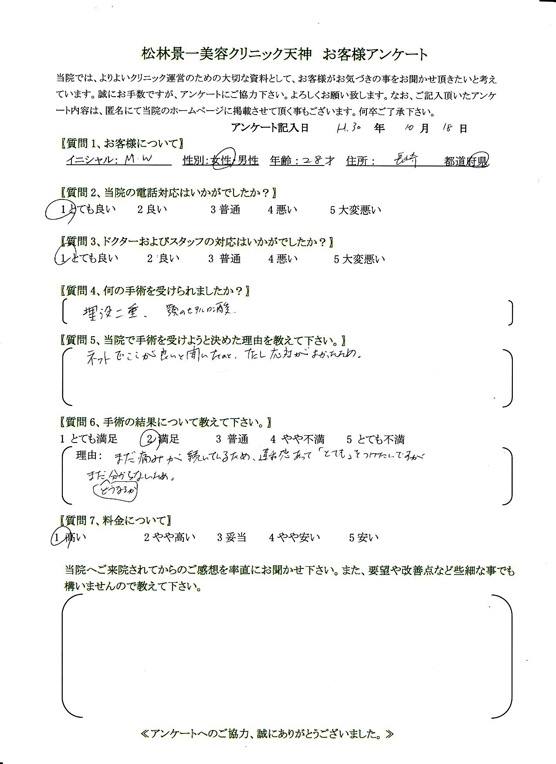 松林景一美容クリニック天神　お客様アンケート
当院では、よりよいクリニック運営のための大切な資料として、お客様がお気づきの事をお聞かせ頂きたいと考え
ています。誠にお手数ですが、アンケートにご協力下さい。よろしくお願い致します。なお、ご記入頂いたアンケ
ート内容は、匿名にて当院のホームページに掲載させて頂く事もございます。何卒ご了承下さい。
アンケート記入日　H.30　年　10　月　18　日
〖質問1、お客様について〗
イニシャル：M.W　性別：女性・男性　年齢：28才　住所：　長崎　都道府県
〖質問2、当院の電話対応はいかがでしたか？〗
1とても良い　2良い　3普通　4悪い　5大変悪い
〖質問3、ドクターおよびスタッフの対応はいかがでしたか？〗
1とても良い　2良い　3普通　4悪い　5大変悪い
〖質問4、何の手術を受けられましたか？〗
埋没二重、顎のヒアルロン酸
〖質問5、当院で手術を受けようと決めた理由を教えて下さい。〗
ネットでここが良いと聞いたのと、対応がよかったため。
〖質問6、手術の結果について教えて下さい。〗
1とても満足　2満足　3普通　4やや不満　5とても不満
理由：まだ痛みが続いているため、「とても」をつけたいですが
まだ分からないため。
どうなるか
〖質問7、料金について〗
1高い　2やや高い　3妥当　4やや安い　5安い
当院へご来院されてからのご感想を率直にお聞かせ下さい。また、要望や改善点など些細な事でも
構いませんので教えて下さい。
≪アンケートへのご協力、誠にありがとうございました。≫